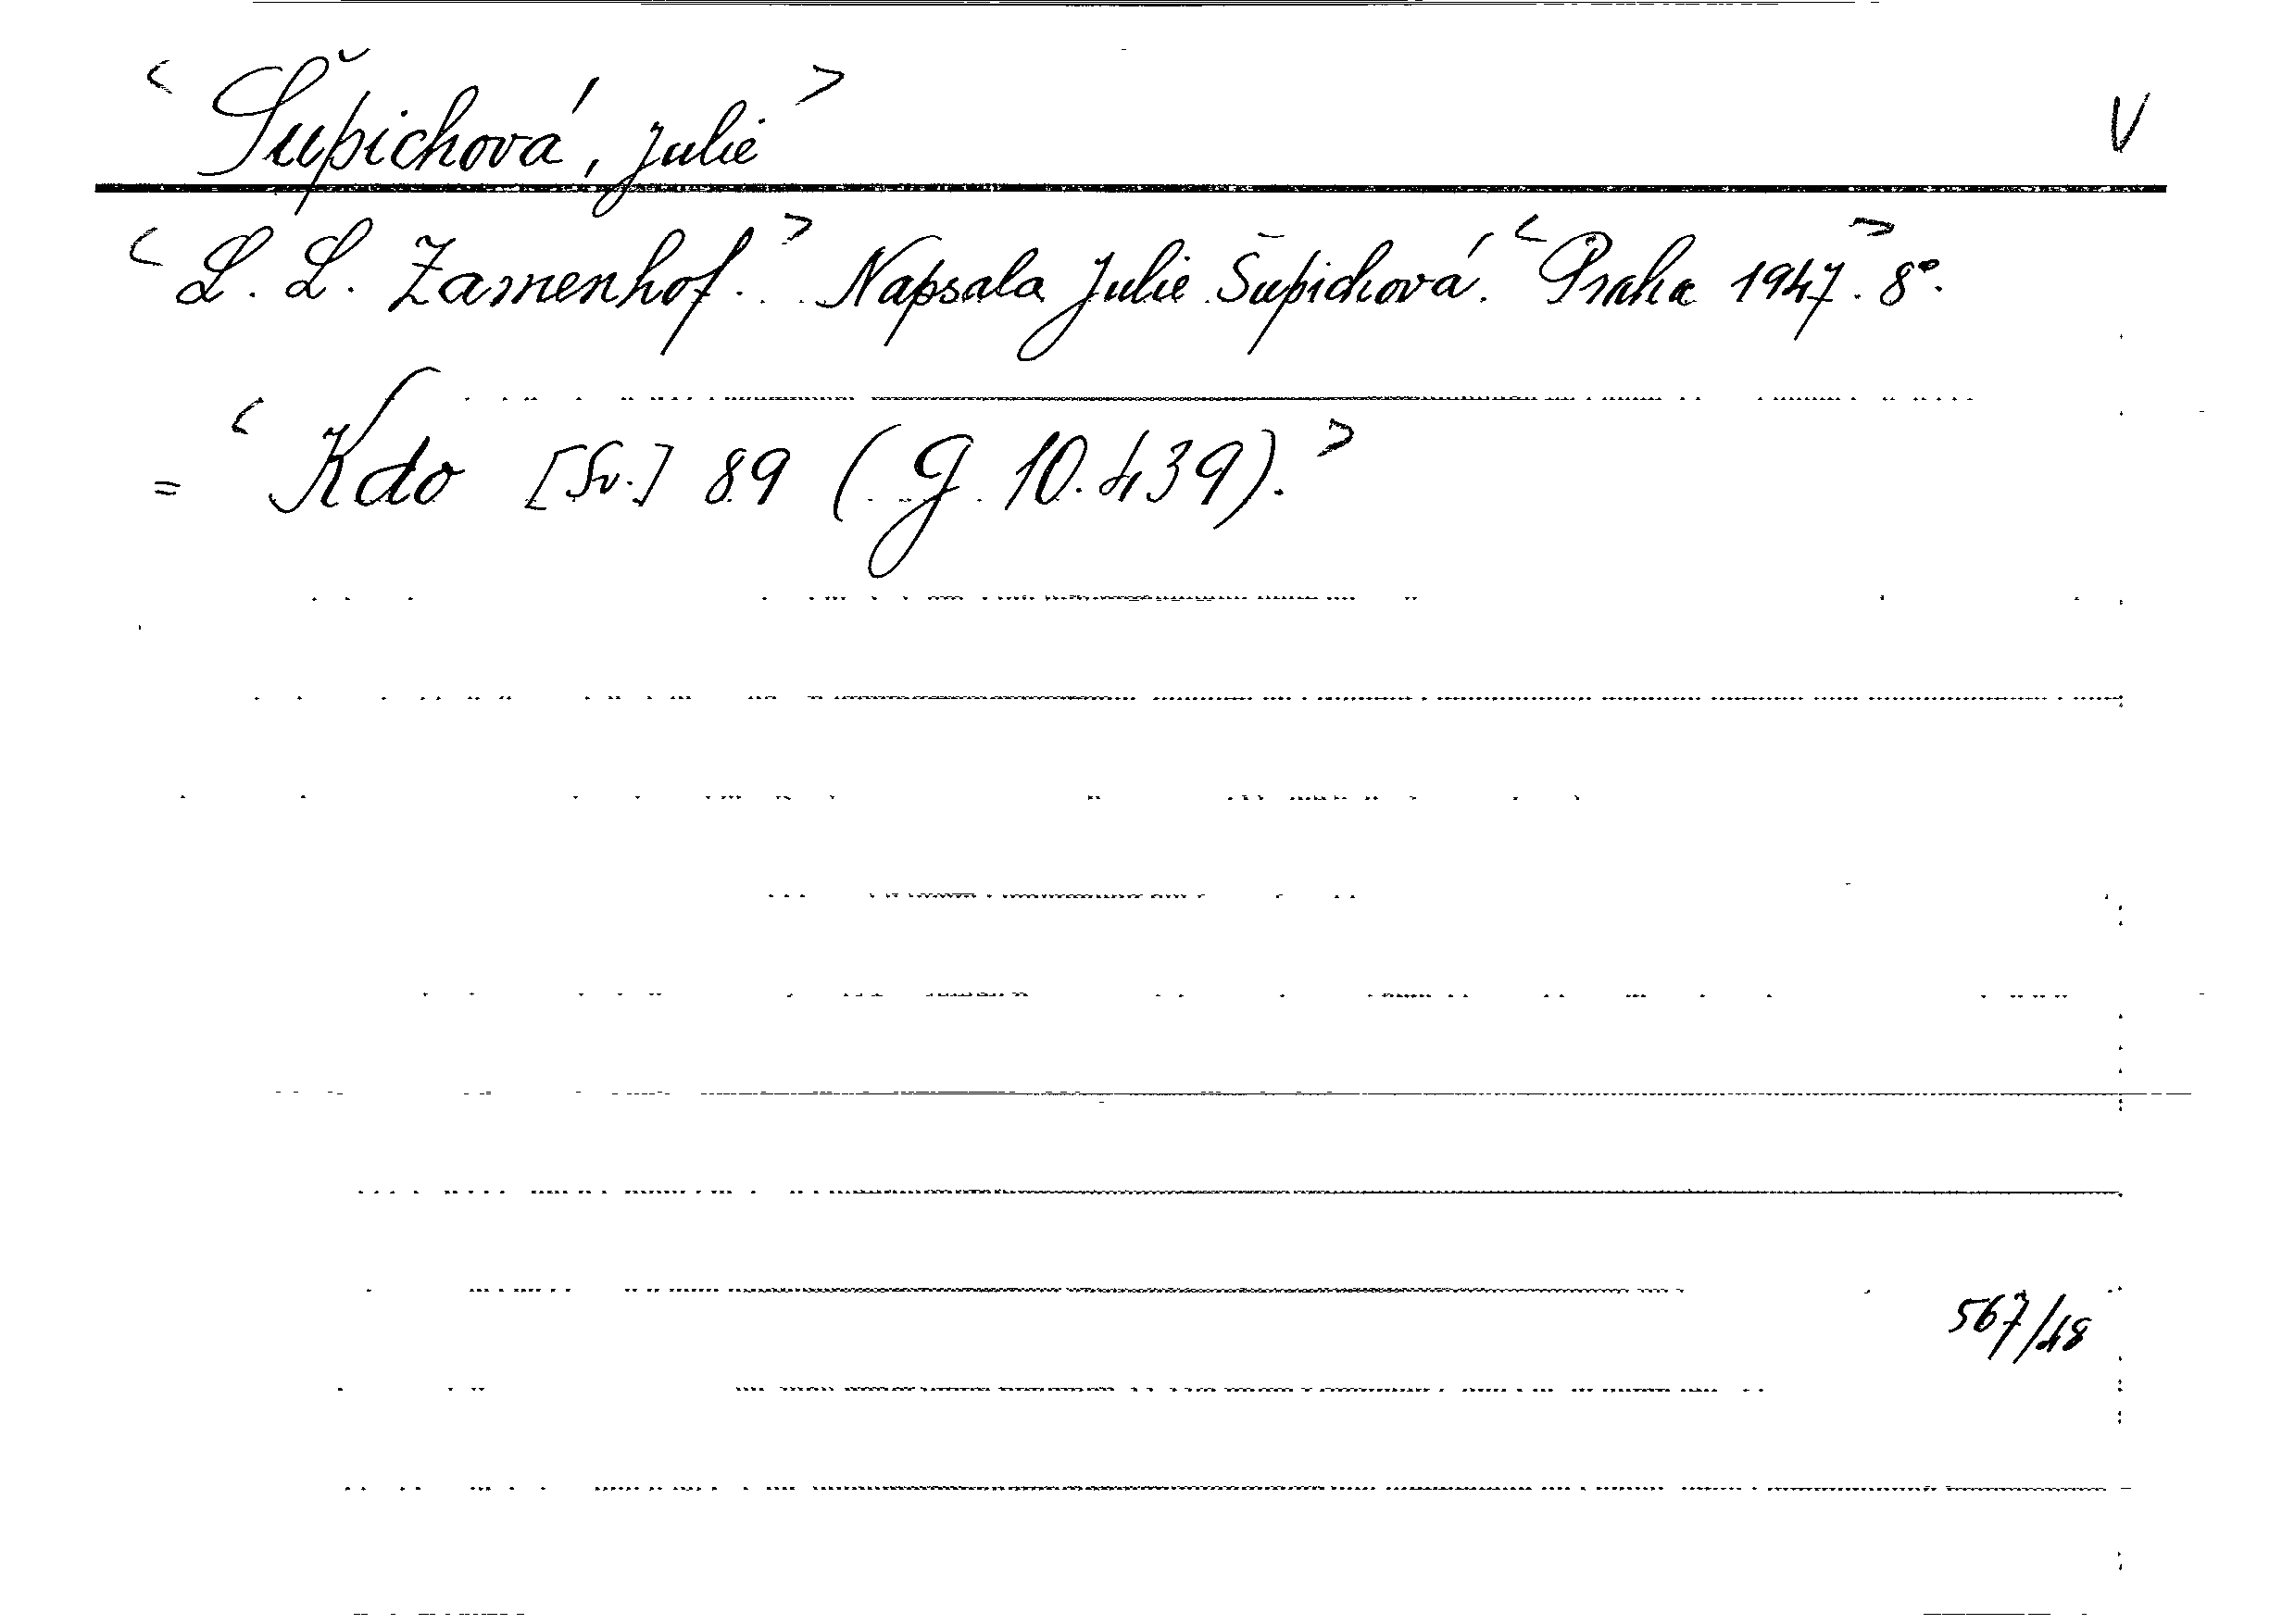 < Šupichová, Julie > V
< L. L. Zamenhof. > Napsala Julie Šupichová. < Praha 1947. > 8°.
= < Kdo [Sv.] 89 (g 10.439). >
567/48